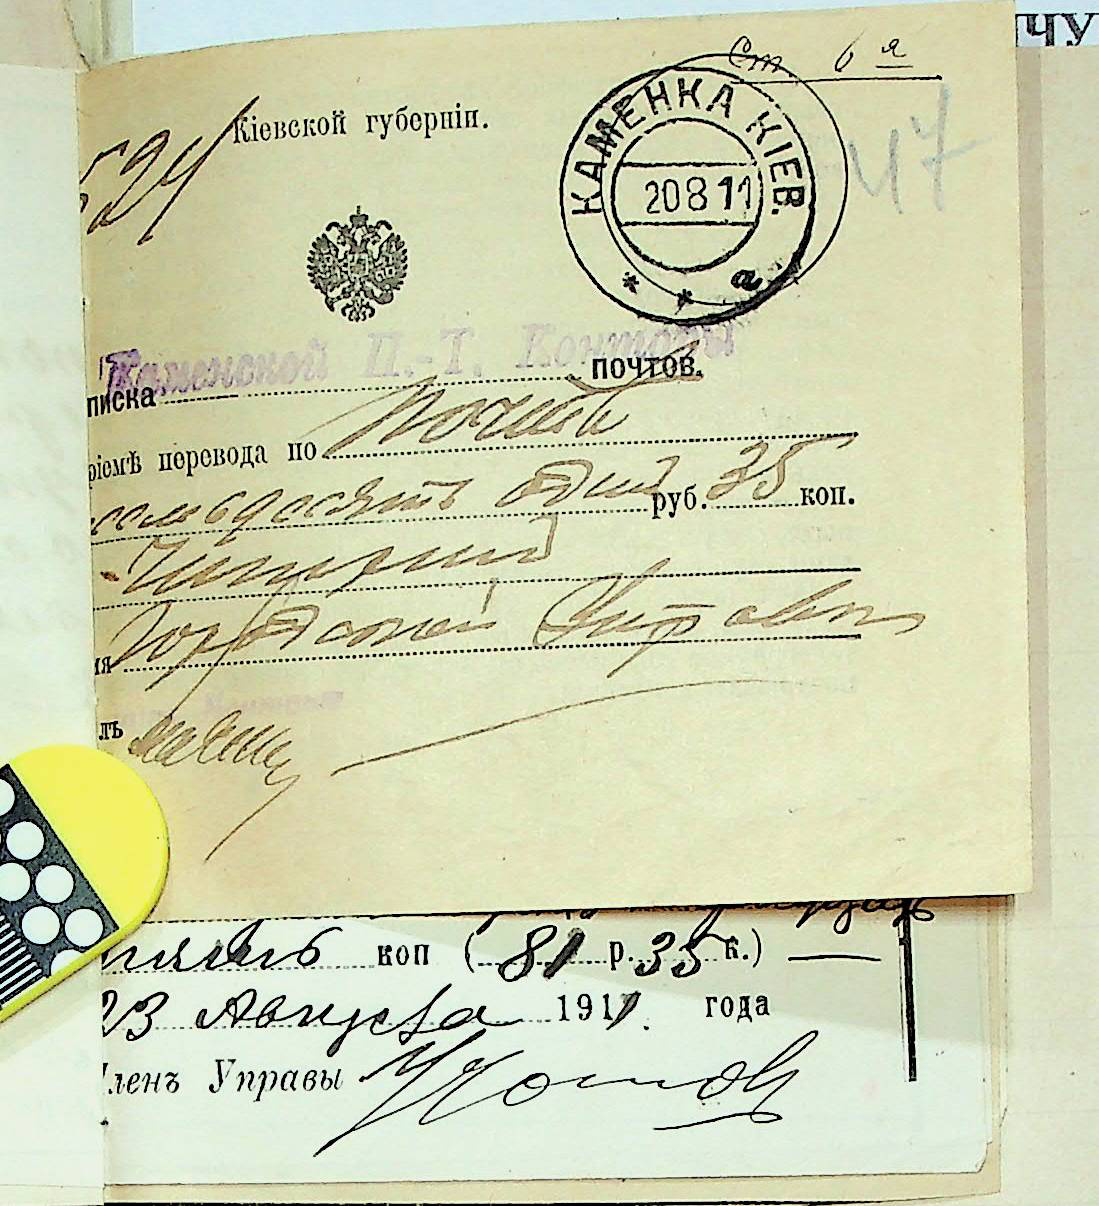 ЧУ
Ст. 6 я
Кіевской губерніи.
524
47
КАМЕНКА КІЕВ.
20 8 11
* * а
Каменской П.-Т. Конторы
почтов.
писка
ріемѣ перевода по Почтѣ
восемьдесятъ один руб. 35 коп.
Чигирин
ія Городской Управы
лъ
пять коп (81 р. 35 к.)
23 Августа 1911. года
Членъ Управы